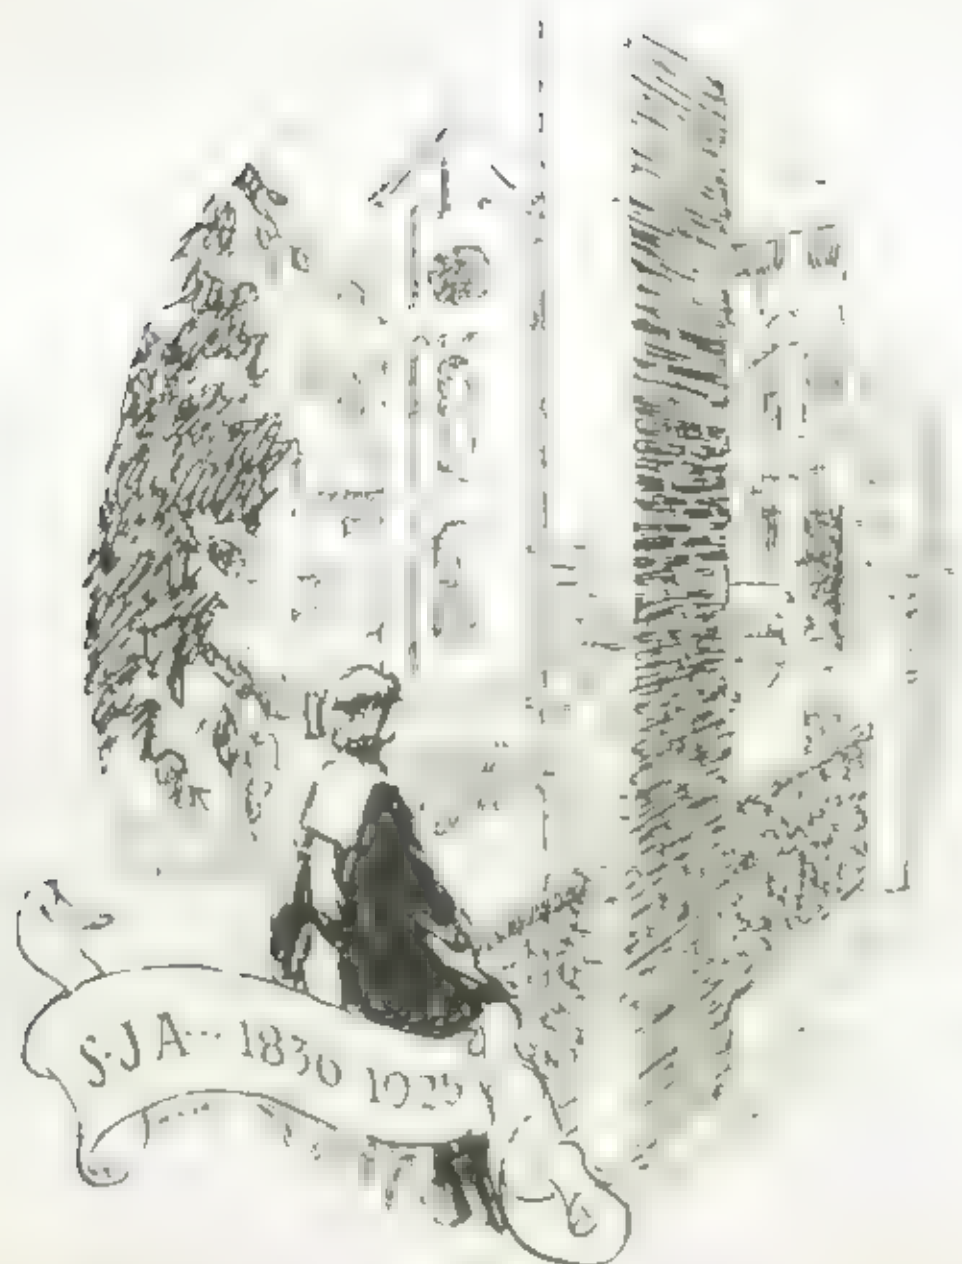 S·J A··· 1836 1925